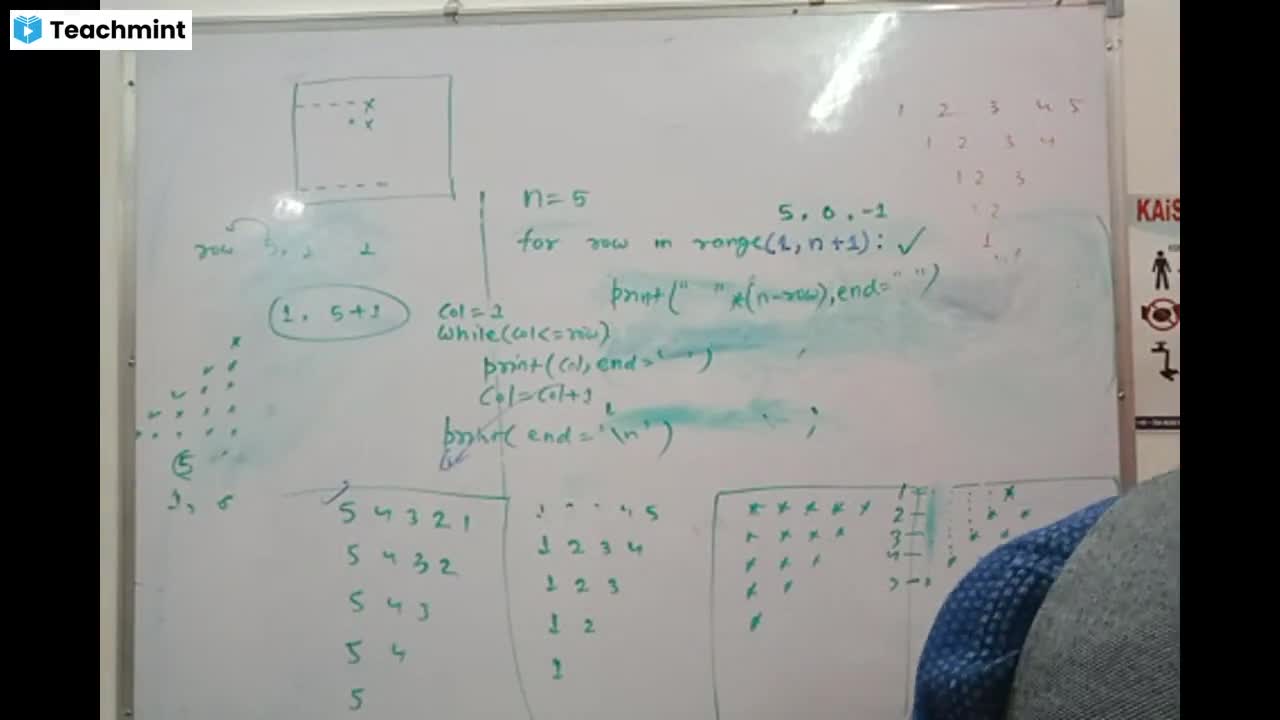 Teachmint
1 2 3 4 5
1 2 3 4
1 2 3
1 2
1
n=5
5, 0, -1
for row in range(1, n+1): ✓
print(" "*(n-row),end=" ")
row
1, 5+1
col=1
while(col<=row)
print(col,end=' ')
col=col+1
print( end='\n')
5
KAiS
5 4 3 2 1
5 4 3 2
5 4 3
5 4
5
4 5
1 2 3 4
1 2 3
1 2
1
* * * * *
* * * *
* * *
* *
*
1
2
3
4